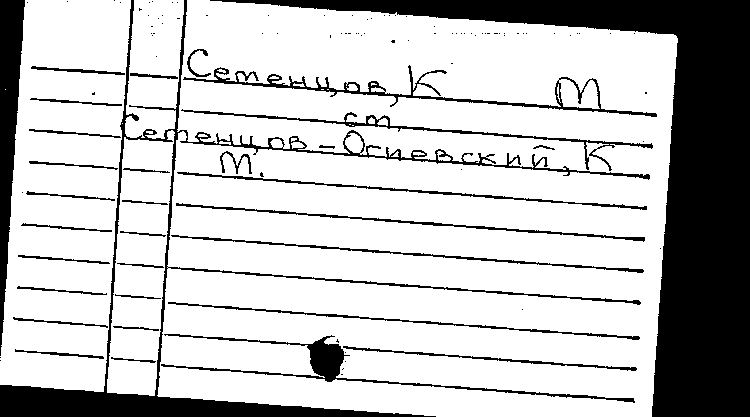 Сетенцов, К М
ст.
Сетенцов - Огиевский, К
М.